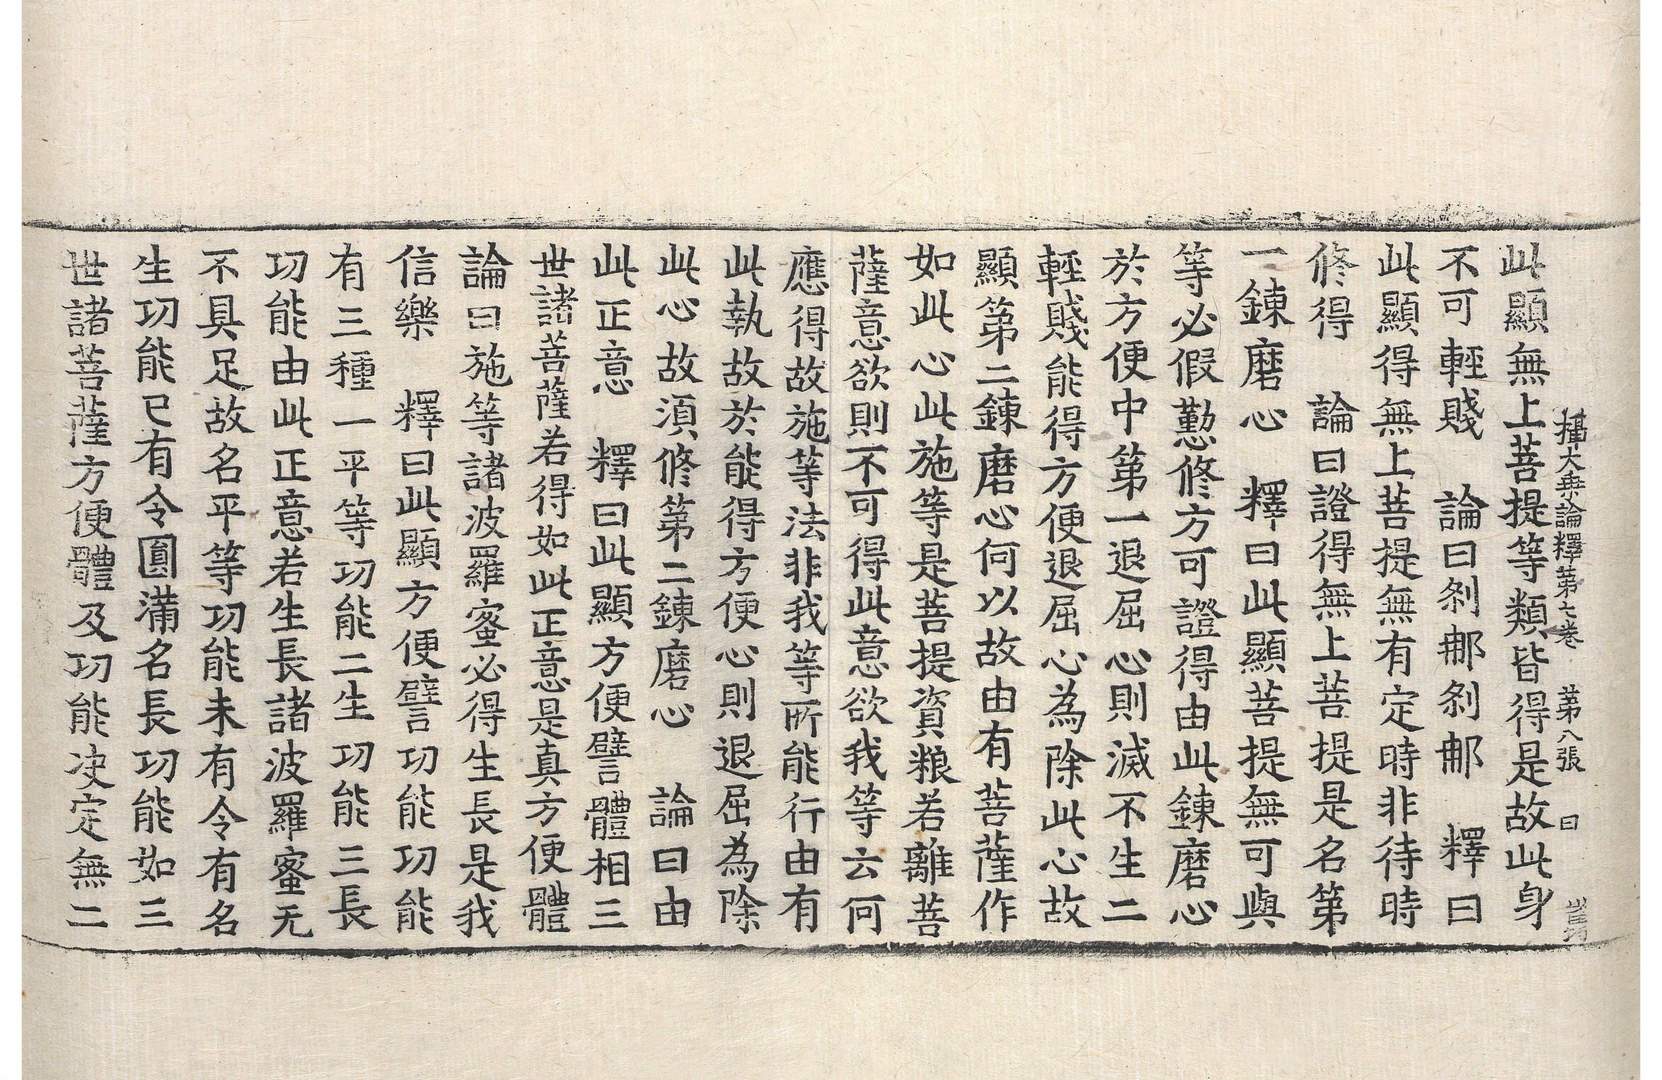 攝大乗論釋第七卷 第八張 曰
此顯無上菩提等類皆得是故此身
不可輕賤 論曰剎郍剎郍 釋曰
此顯得無上菩提無有定時非待時
修得 論曰證得無上菩提是名第
一鍊磨心 釋曰此顯菩提無可與
等必假懃修方可證得由此鍊磨心
於方便中第一退屈心則滅不生二
輕賤能得方便退屈心為除此心故
顯第二鍊磨心何以故由有菩薩作
如此心此施等是菩提資粮若離菩
薩意欲則不可得此意欲我等云何
應得故施等法非我等所能行由有
此執故於能得方便心則退屈為除
此心故湏修第二鍊磨心 論曰由
此正意 釋曰此顯方便譬體相三
世諸菩薩若得如此正意是真方便體
論曰施等諸波羅蜜必得生長是我
信樂 釋曰此顯方便譬功能功能
有三種一平等功能二生功能三長
功能由此正意若生長諸波羅蜜无
不具足故名平等功能未有令有名
生功能已有令圓滿名長功能如三
世諸菩薩方便體及功能决定無二